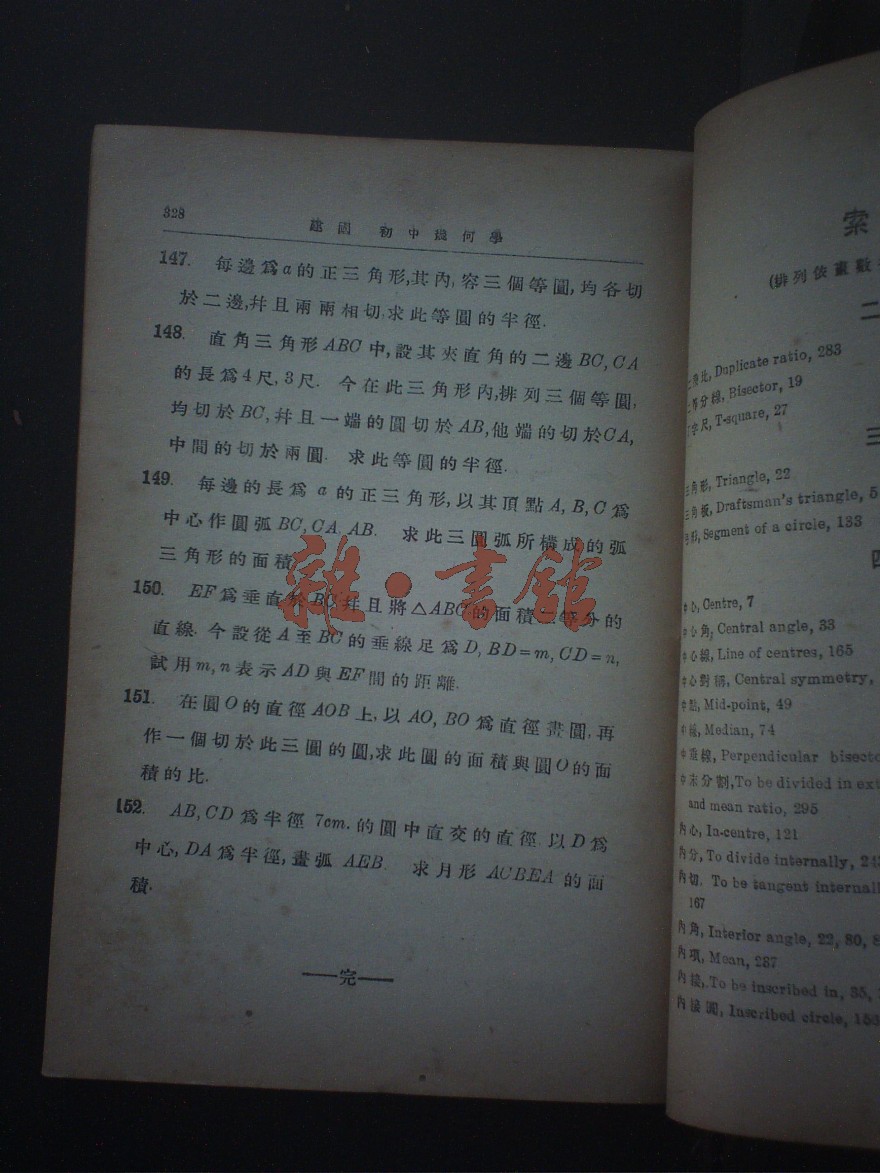 328
建國 初中幾何學
147. 每邊爲a的正三角形,其內,容三個等圓,均各切
於二邊,幷且兩兩相切,求此等圓的半徑.
148. 直角三角形ABC中,設其夾直角的二邊BC,CA
的長爲4尺,3尺. 今在此三角形內,排列三個等圓,
均切於BC,幷且一端的圓切於AB,他端的切於CA,
中間的切於兩圓. 求此等圓的半徑.
149. 每邊的長爲a的正三角形,以其頂點A,B,C爲
中心作圓弧BC,CA,AB. 求此三圓弧所構成的弧
三角形的面積
150. EF爲垂直於BC,幷且將△ABC的面積 等分的
直線. 今設從A至BC的垂線足爲D,BD=m,CD=n,
試用m,n表示AD與EF間的距離.
151. 在圓O的直徑AOB上,以AO,BO爲直徑畫圓,再
作一個切於此三圓的圓,求此圓的面積與圓O的面
積的比.
152. AB,CD爲半徑7cm.的圓中直交的直徑.以D爲
中心,DA爲半徑,畫弧AEB. 求月形ACBEA的面
積.
——完——
雜·書館
索
(排列依畫數
二
比, Duplicate ratio, 283
分線, Bisector, 19
丁字尺, T-square, 27
三
三角形, Triangle, 22
三角板, Draftsman's triangle, 5
弓形, Segment of a circle, 133
四
中心, Centre, 7
中心角, Central angle, 33
中心線, Line of centres, 165
中心對稱, Central symmetry,
中點, Mid-point, 49
中線, Median, 74
中垂線, Perpendicular bisecto
中末分割, To be divided in ext
and mean ratio, 295
內心, In-centre, 121
內分, To divide internally, 24
內切. To be tangent internall
167
內角, Interior angle, 22, 80,
內項, Mean, 287
內接, To be inscribed in, 35,
內接圓, Inscribed circle,